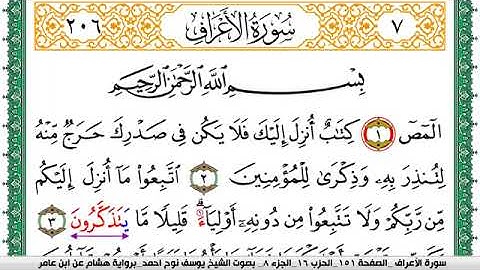 ٧ سُورَةُ الأَعْرَافِ ٢٠٦
بِسْمِ اللَّهِ الرَّحْمَٰنِ الرَّحِيمِ
الٓمٓصٓ ١ كِتَٰبٌ أُنزِلَ إِلَيْكَ فَلَا يَكُن فِى صَدْرِكَ حَرَجٌ مِّنْهُ
لِتُنذِرَ بِهِۦ وَذِكْرَىٰ لِلْمُؤْمِنِينَ ٢ اتَّبِعُوا۟ مَآ أُنزِلَ إِلَيْكُم
مِّن رَّبِّكُمْ وَلَا تَتَّبِعُوا۟ مِن دُونِهِۦٓ أَوْلِيَآءَ قَلِيلًا مَّا يَتَذَكَّرُونَ ٣
سورة الأعراف _ الصفحة ١٥١ _ الحزب ١٦ _ الجزء ٨ _ بصوت الشيخ يوسف نوح أحمد _ برواية هشام عن ابن عامر